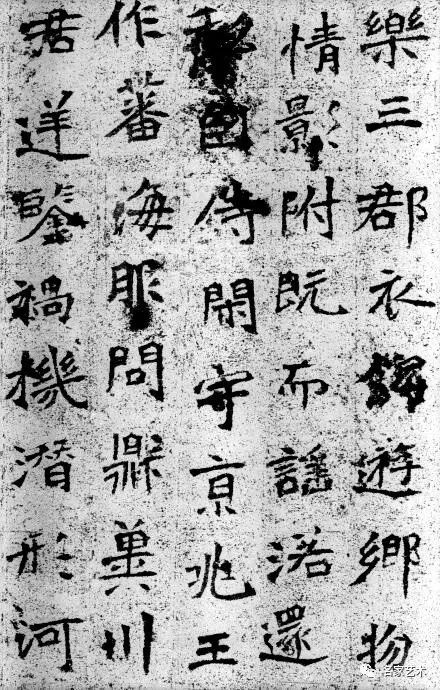 樂三郡衣錦遊鄉物
情影附既而謠還
侍閑守京兆王
作蕃海服問鼎冀川
君逆鑒禍機潛形河
名家艺术